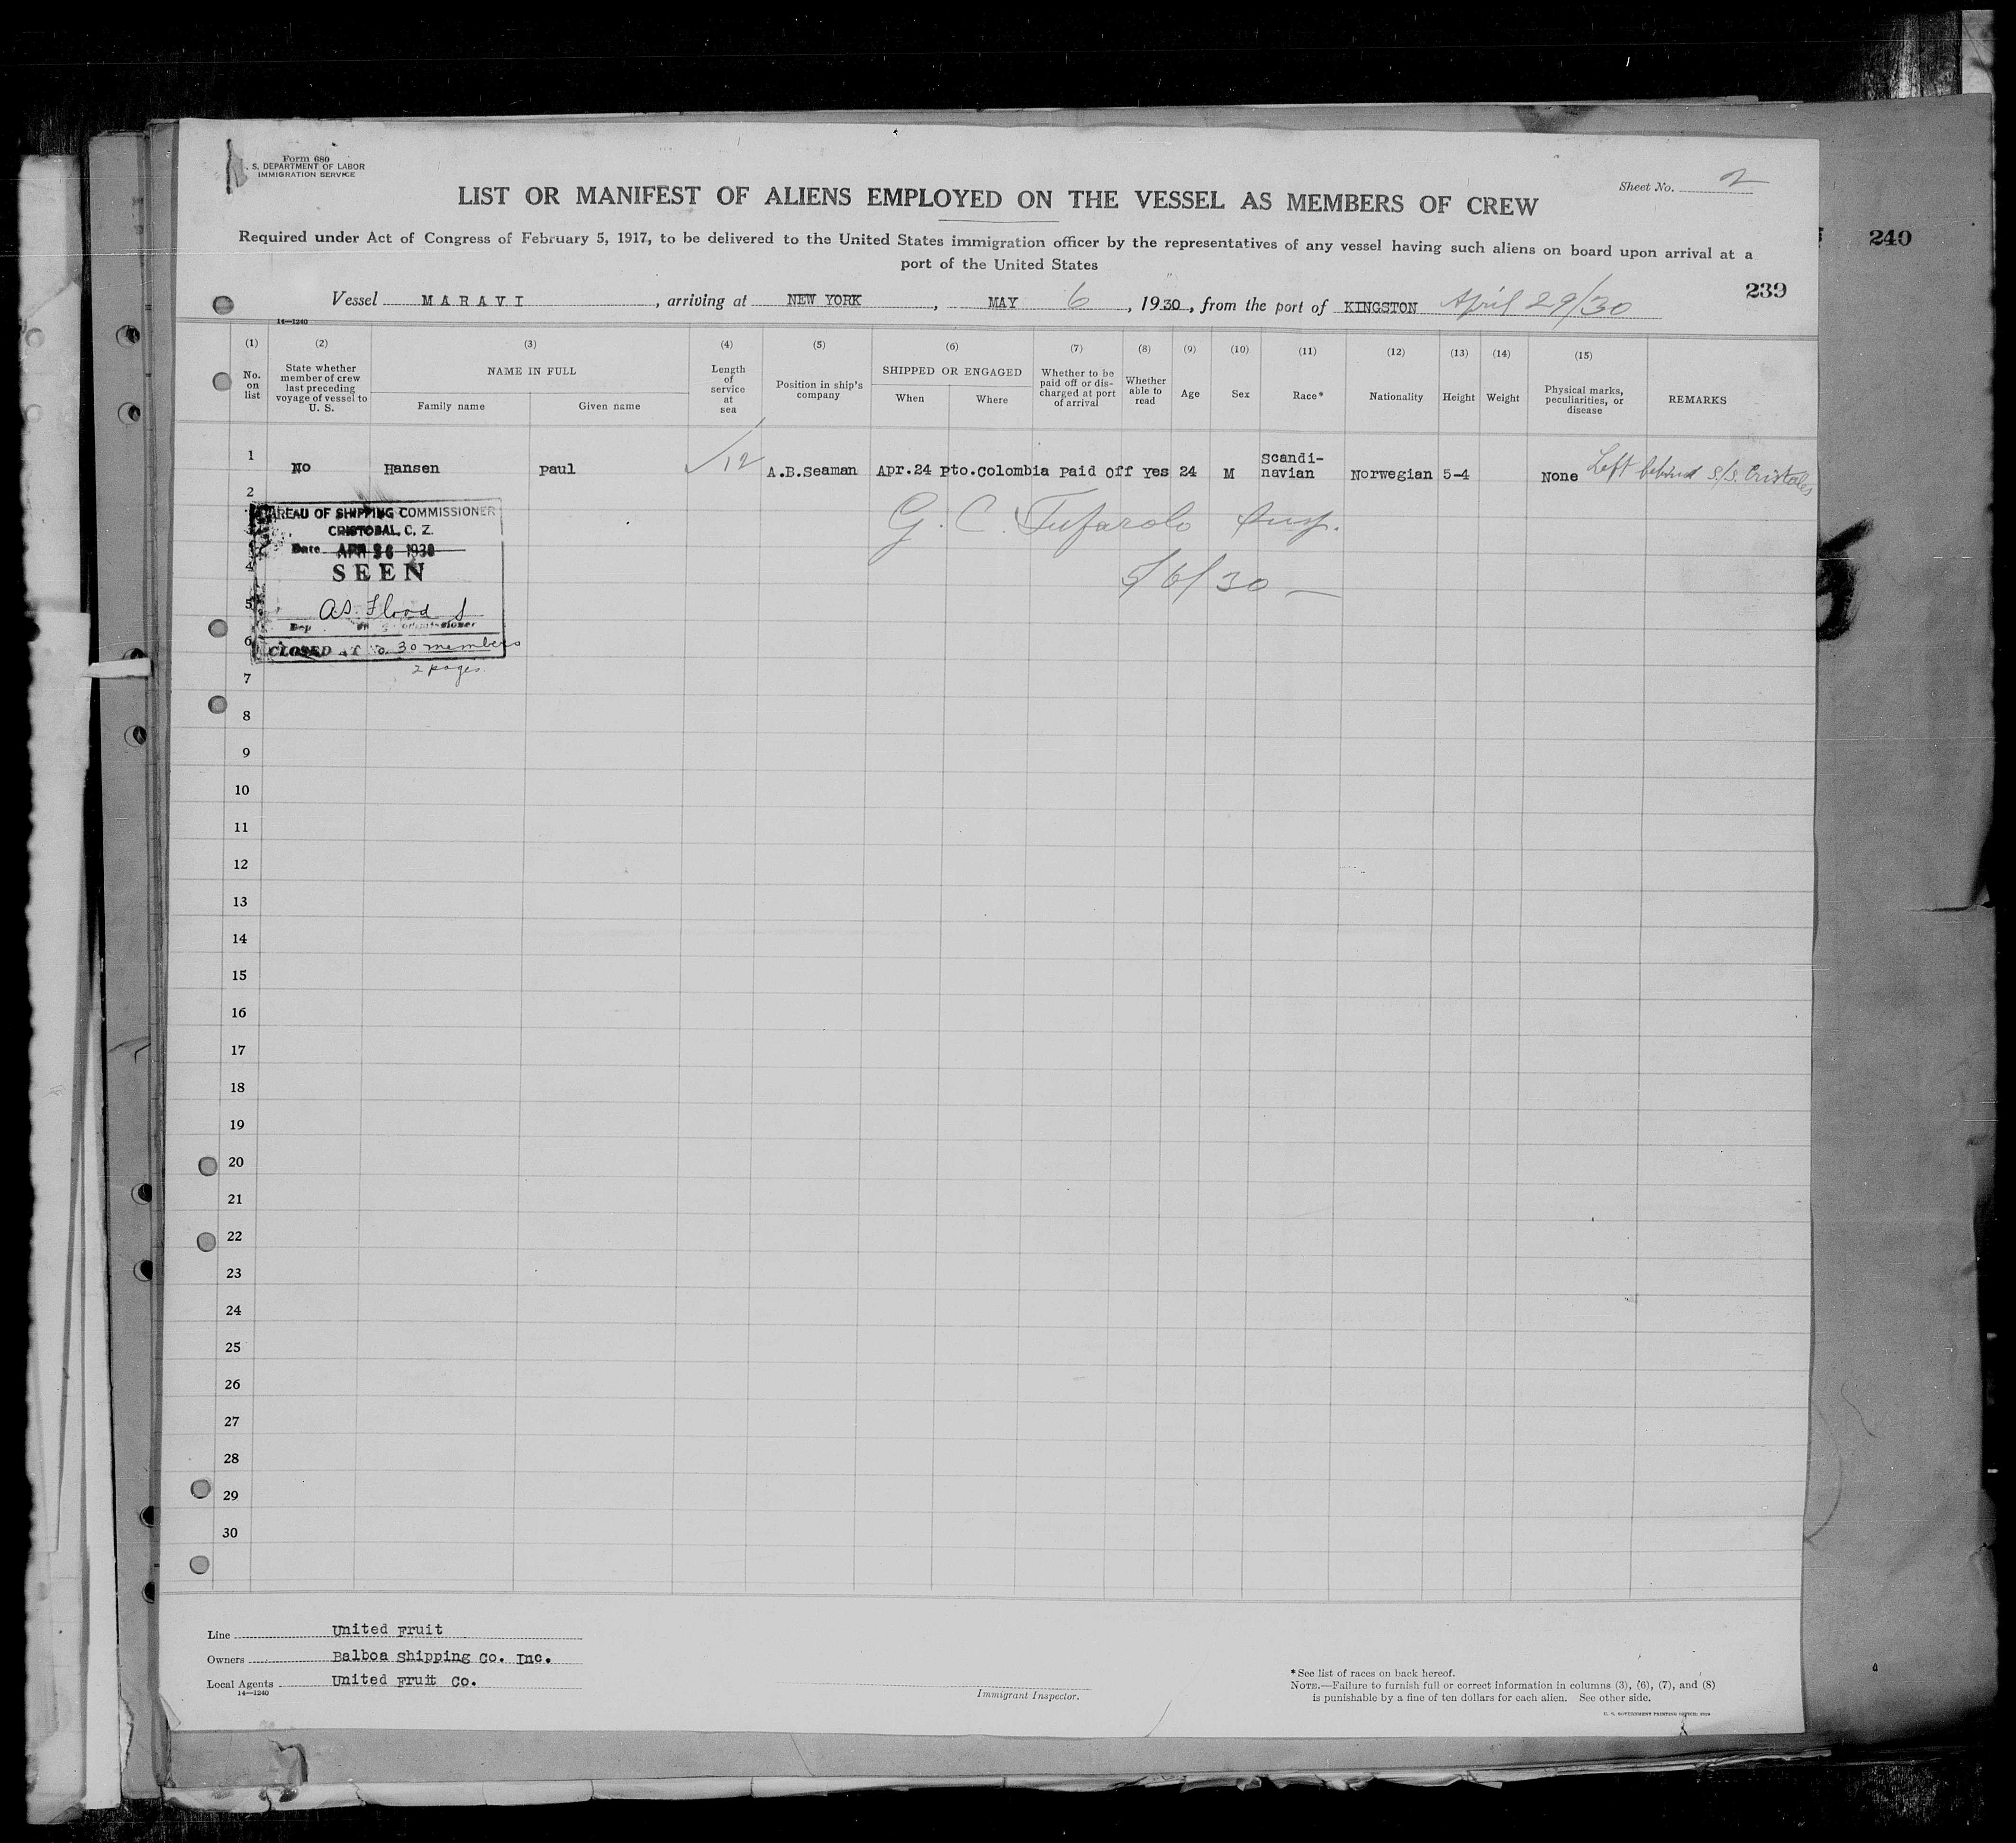 Form 680
S. DEPARTMENT OF LABOR
IMMIGRATION SERVICE
Sheet No. 2
LIST OR MANIFEST OF ALIENS EMPLOYED ON THE VESSEL AS MEMBERS OF CREW
Required under Act of Congress of February 5, 1917, to be delivered to the United States immigration officer by the representatives of any vessel having such aliens on board upon arrival at a
port of the United States
240
239
Vessel MARAVI, arriving at NEW YORK, MAY 6, 1930, from the port of KINGSTON April 29/30
14—1240
(1) (2) (3) (4) (5) (6) (7) (8) (9) (10) (11) (12) (13) (14) (15)
No. on list
State whether member of crew last preceding voyage of vessel to U. S.
NAME IN FULL
Family name
Given name
Length of service at sea
Position in ship's company
SHIPPED OR ENGAGED
When
Where
Whether to be paid off or discharged at port of arrival
Whether able to read
Age
Sex
Race*
Nationality
Height
Weight
Physical marks, peculiarities, or disease
REMARKS
1 No Hansen Paul 12 A.B.Seaman Apr.24 Pto.Colombia Paid Off Yes 24 M Scandi-navian Norwegian 5-4 None Left behind S/S. Cristales
2
G. C. Tufarolo Insp.
5/6/30
BUREAU OF SHIPPING COMMISSIONER
CRISTOBAL, C. Z.
Date APR 26 1930
SEEN
CLOSED AT 30 members
2 pages.
4
5
6
7
8
9
10
11
12
13
14
15
16
17
18
19
20
21
22
23
24
25
26
27
28
29
30
Line United Fruit
Owners Balboa Shipping Co. Inc.
Local Agents United Fruit Co.
14—1240
Immigrant Inspector.
*See list of races on back hereof.
NOTE.—Failure to furnish full or correct information in columns (3), (6), (7), and (8)
is punishable by a fine of ten dollars for each alien. See other side.
U. S. GOVERNMENT PRINTING OFFICE: